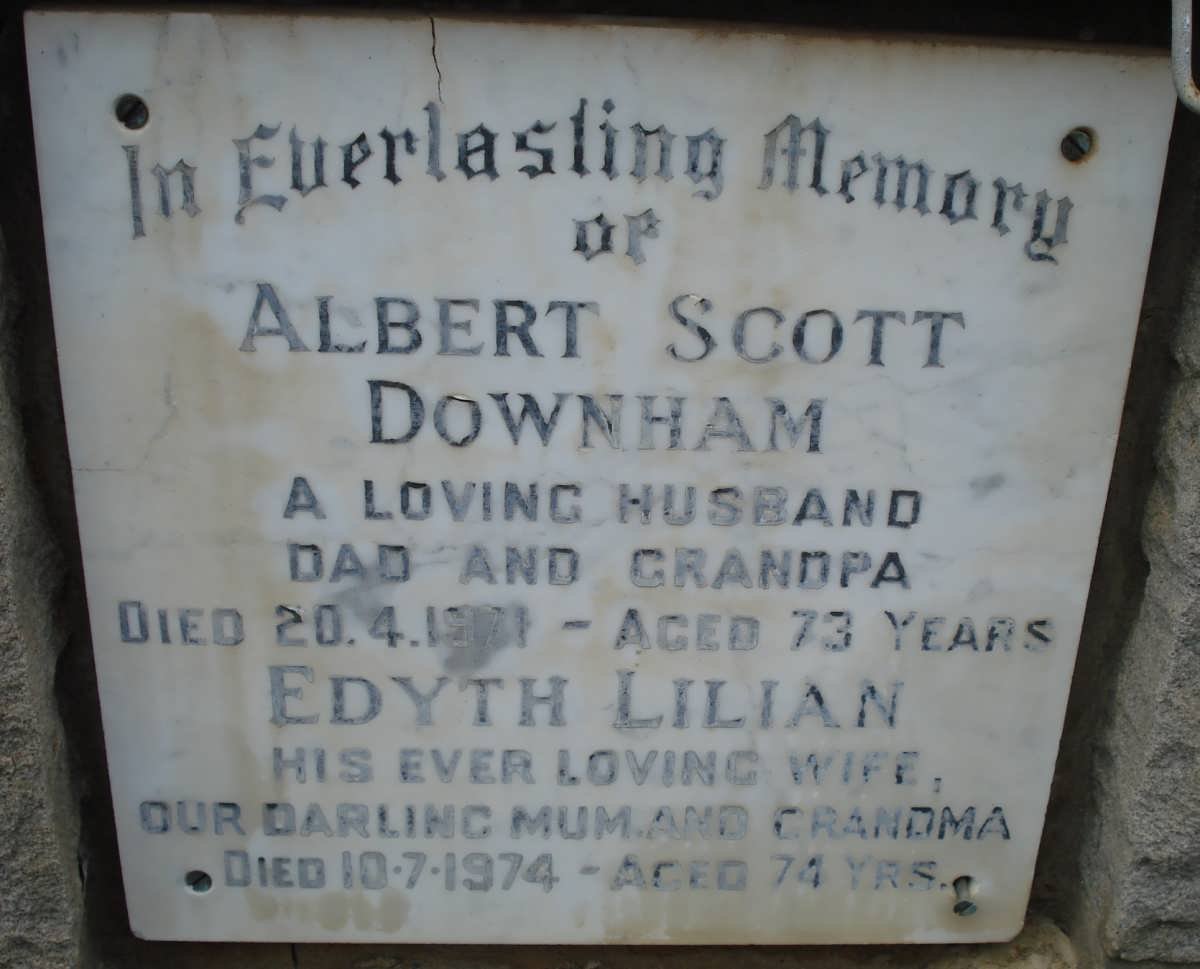 In Everlasting Memory
of
ALBERT SCOTT
DOWNHAM
A LOVING HUSBAND
DAD AND GRANDPA
DIED 20.4.1971 - AGED 73 YEARS
EDYTH LILIAN
HIS EVER LOVING WIFE,
OUR DARLING MUM.AND GRANDMA
DIED 10.7.1974 - AGED 74 YRS.